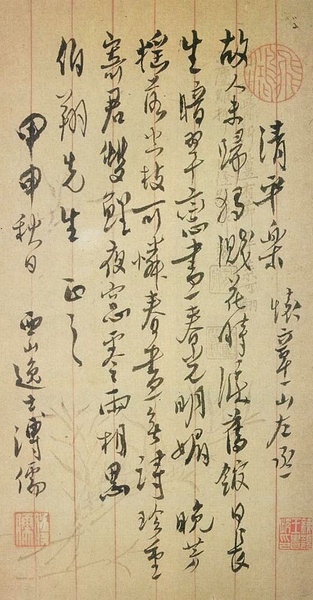 清平樂 懷章一山左丞
故人未歸獨濺花時淚舊館日長
生暗翠一春光明媚 晚芳
搖落空枝可憐春盡無詩珍重
寄君雙鯉夜窗零雨相思
伯翔先生 正之
甲申秋日 西山逸士溥儒